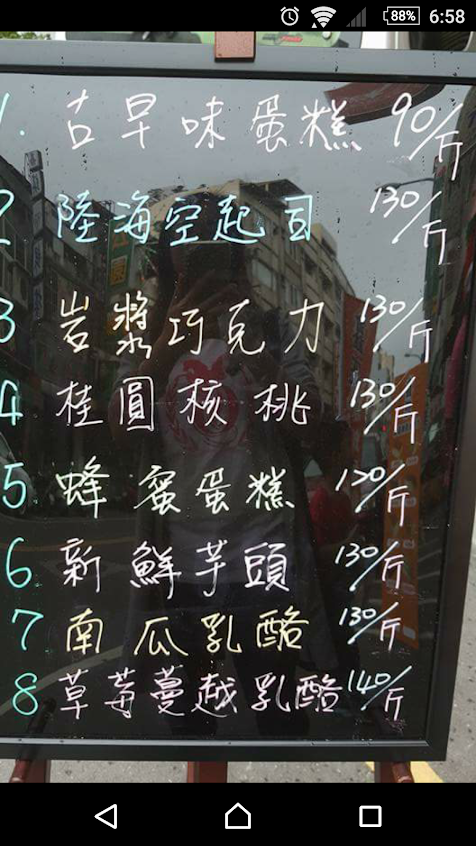 88% 6:58
1. 古早味蛋糕 90/斤
2 陸海空起司 130/斤
3 岩漿巧克力 130/斤
4 桂圓核桃 130/斤
5 蜂蜜蛋糕 120/斤
6 新鮮芋頭 130/斤
7 南瓜乳酪 130/斤
8 草莓蔓越乳酪 140/斤